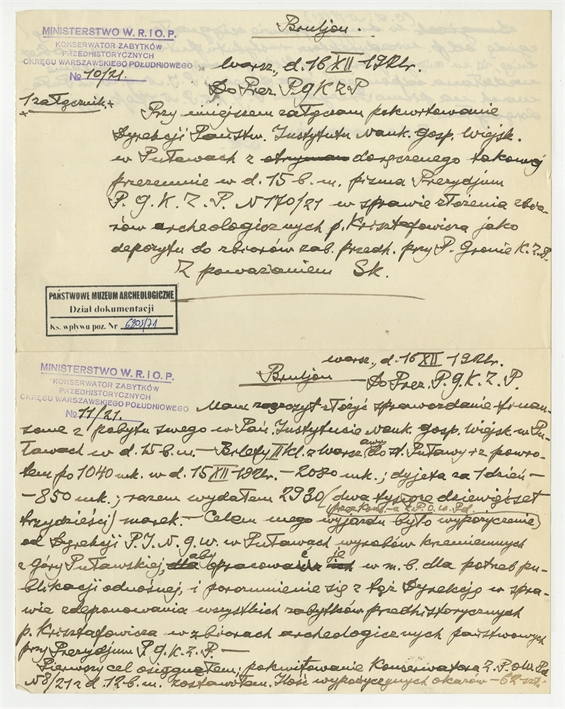 MINISTERSTWO W. R i O. P.
KONSERWATOR ZABYTKÓW
PRZEDHISTORYCZNYCH
OKRĘGU WARSZAWSKIEGO POŁUDNIOWEGO
№ 10/21.
Bruljon.
Warsz., d. 16 XII 1921 r.
Do Prez. P. G. K. Z. P
1 załącznik
Przy niniejszem załączam pokwitowanie
Dyrekcji Państw. Instytutu Nauk. Gosp. Wiejsk.
w Puławach z doręczonego takowej
przezemnie w d. 15 b. m. pisma Prezydjum
P. G. K. Z. P. N 170/21 w sprawie złożenia zbio-
rów archeologicznych p. Krisztafowicza jako
depozytu do zbiorów zab. przedh. przy P. Gronie K. Z. P.
Z poważaniem Sk.
PAŃSTWOWE MUZEUM ARCHEOLOGICZNE
Dział dokumentacji
Ks. wpływu poz. Nr
Warsz., d. 16 XII 1921 r.
MINISTERSTWO W. R i O. P.
KONSERWATOR ZABYTKÓW
PRZEDHISTORYCZNYCH
OKRĘGU WARSZAWSKIEGO POŁUDNIOWEGO
№ 11/21.
Bruljon
Do Prez. P. G. K. Z. P.
Mam zaszczyt złożyć sprawozdanie finan-
sowe z pobytu swego w Pań. Instytucie Nauk. gosp. Wiejsk. w Pu-
ławach w d. 15 b. m. – Bilety II kl. z Warszawy do st. Puławy i z powro-
tem po 1040 mk. w d. 15 XII 1921 r. – 2080 mk.; dyjeta za 1 dzień –
– 850 mk.; razem wydałem 2930 (dwa tysiące dziewięćset
trzydzieści) marek. – Celem mego wyjazdu było wypożyczenie
od Dyrekcji P. I. N. G. W. w Puławach wyrobów krzemiennych
z góry Puławskiej, aby opracować je w m. b. dla potrzeb pu-
blikacji odnośnej, i porozumienie się z tąż Dyrekcją w spra-
wie zdeponowania wszystkich zabytków przedhistorycznych
p. Krisztafowicza w zbiorach archeologicznych państwowych
przy Prezydjum P. G. K. Z. P. –
Pierwszy cel osiągnąłem; pokwitowanie Konserwatora Z. P. O. W. Pd.
N 8/21 z d. 12 b. m. zostawiłem. Ilość wypożyczonych okazów – 62 szt.